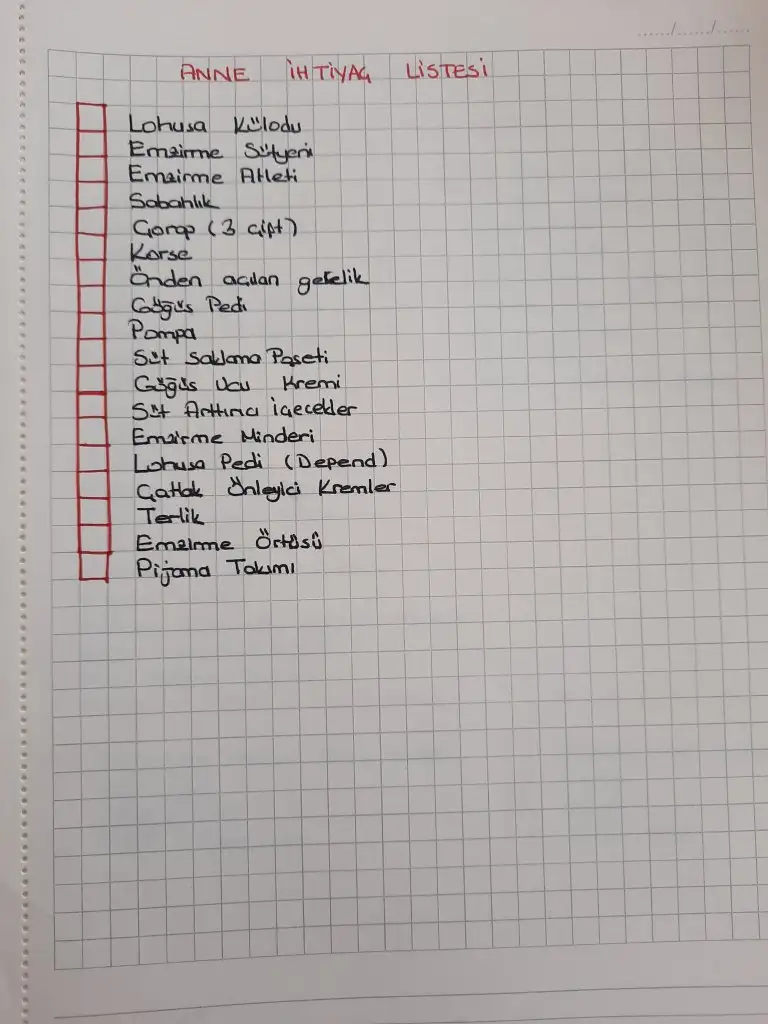 ....../....../......
ANNE İHTİYAÇ LİSTESİ
Lohusa Külodu
Emzirme Sütyeni
Emzirme Atleti
Sabahlık
Çorap (3 çift)
Korse
Önden açılan gecelik
Göğüs Pedi
Pompa
Süt Saklama Poşeti
Göğüs Ucu Kremi
Süt Arttırıcı İçecekler
Emzirme Minderi
Lohusa Pedi (Depend)
Çatlak Önleyici Kremler
Terlik
Emzirme Örtüsü
Pijama Takımı